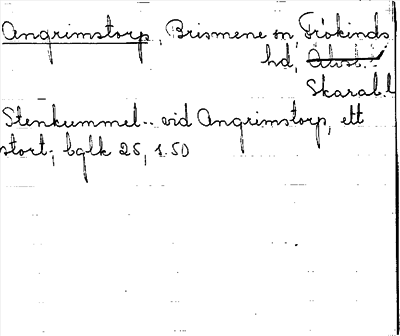 Angrimstorp, Brismene sn, Frökinds
hd, Älvsb.
Skarab.l
Stenkummel.. vid Angrimstorp, ett
stort; bglk 25, 1.50